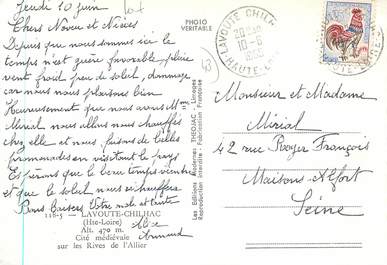 Jeudi 10 juin
Chers Neveu et Nièces
Depuis que nous sommes ici le
temps n'est guère favorable, pluie
vent froid, peu de soleil, dommage
car nous nous plaisons bien
Heureusement que nous avons Mme
Mirial nous allons nous chauffer
chez elle et nous faisons de belles
promenades en visitant le pays
Espérons que le beau temps vienne
et que le soleil nous réchauffera
Bons baisers Votre et tante
Armand
110-5 - LAVOUTE-CHILHAC
(Hte-Loire)
Alt. 470 m.
Cité médiévale
sur les Rives de l'Allier
PHOTO
VERITABLE
Les Editions Modernes THEOJAC - Limoges
Reproduction interdite - Fabrication Française
LAVOUTE CHILHAC
10-6
HAUTE-LOIRE
Monsieur et Madame
Mirial
42 rue Roger François
Maisons-Alfort
Seine